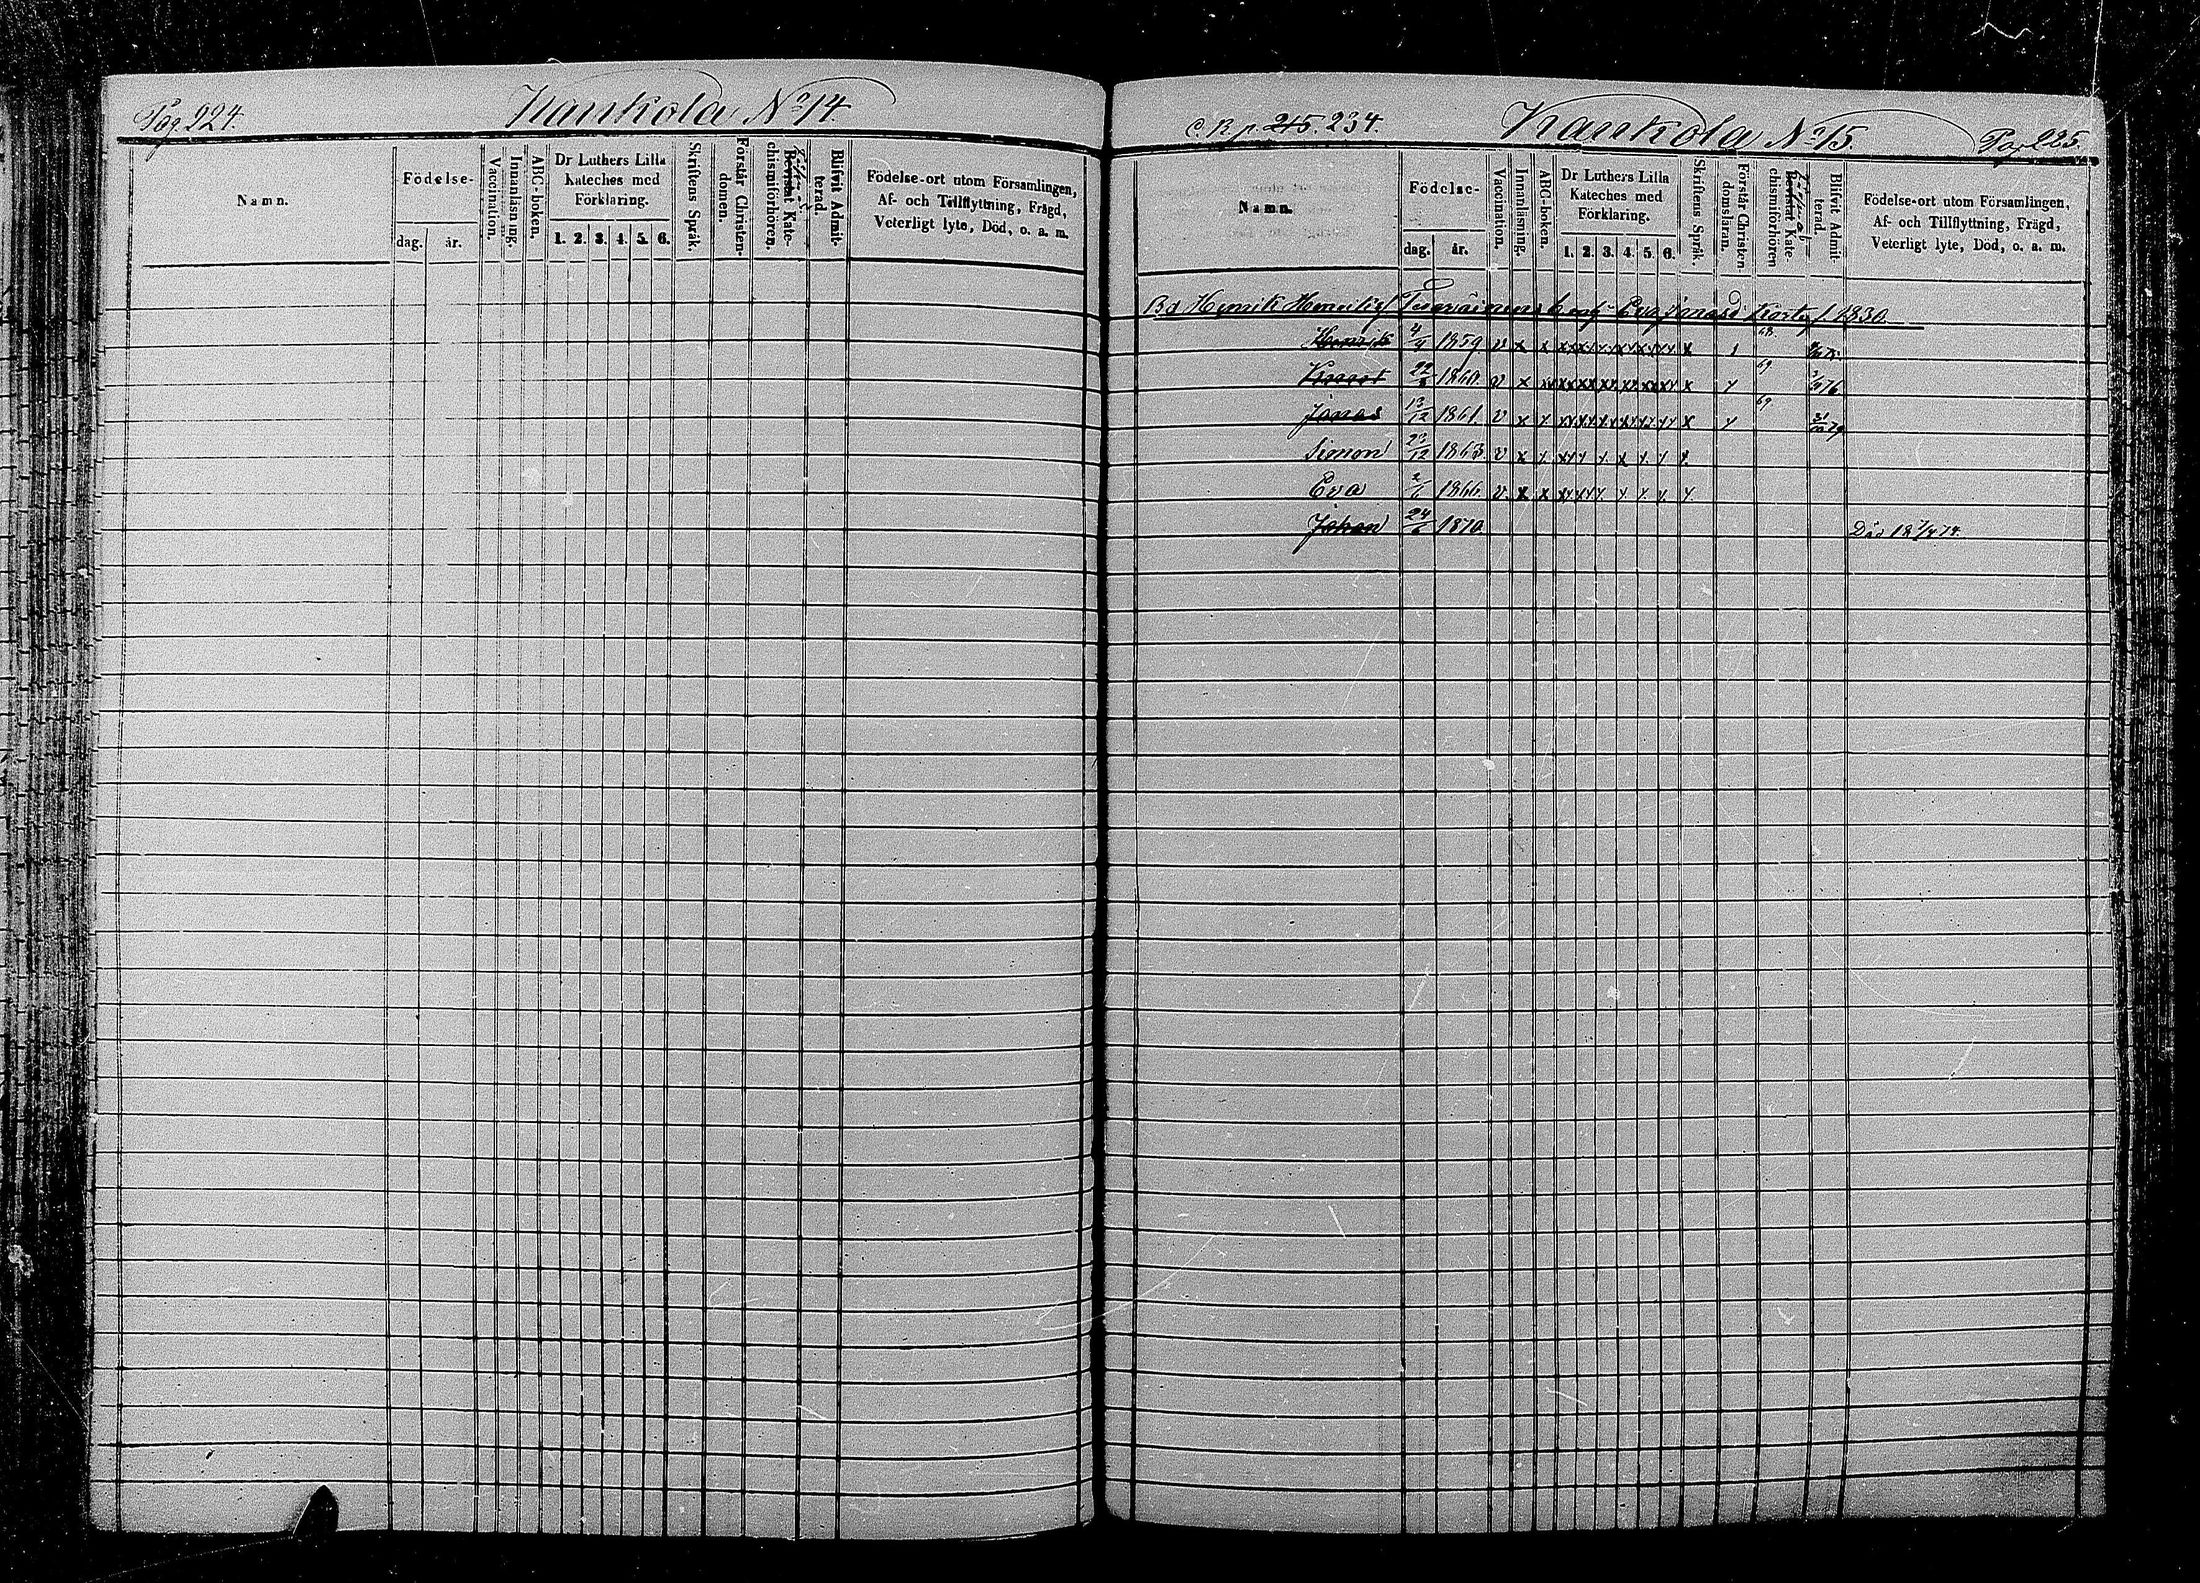 Pag 224.
Kankola No 14.
Namn.
Födelse-
dag.
år.
Vaccination.
Innanläsning.
ABC-boken.
Dr Luthers Lilla
Kateches med
Förklaring.
1. 2. 3. 4. 5. 6.
Skriftens Språk.
Förstår Christen-
domen.
Bevistat Kate-
chismiförhören.
Blifvit Admit-
terad.
Födelse-ort utom Församlingen,
Af- och Tillflyttning, Frägd,
Veterligt lyte, Död, o. a. m.
C. B. p. 215. 234.
Kankola No 15.
Pag 225.
Namn.
Födelse-
dag.
år.
Vaccination.
Innanläsning.
ABC-boken.
Dr Luthers Lilla
Kateches med
Förklaring.
1. 2. 3. 4. 5. 6.
Skriftens Språk.
Förstår Christen-
domsläran.
Bevistat Kate-
chismiförhören
Blifvit Admit-
terad.
Födelse-ort utom Församlingen,
Af- och Tillflyttning, Frägd,
Veterligt lyte, Död, o. a. m.
Bd Henrik Eva Jonasd f 1830.
Henrik 4/4 1859. v x x x 68
22 1860. v x 69 76.
Jonas 13/12 1861. v x 69 79
Simon 23/12 1863. v x
Eva 2/6 1866. v x x
Johan 24/6 1870. Död 74.